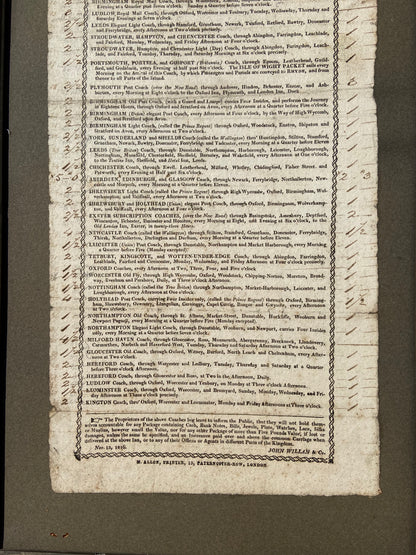 BIRMINGHAM Royal Mail Coach, through
Evening at a Quarter before Seven o'clock. Sunday a Quarter before Seven o'clock.
LUDLOW Royal Mail Coach, through Oxford, Worcester and Tenbury, Tuesday, Wednesday, Thursday and
Saturday Evenings at Seven o'clock.
LEEDS Elegant Light Coach, through Stamford, Grantham, Newark, Tuxford, Retford, Bawtry, Doncaster
and Ferrybridge, every Afternoon at Two o'clock precisely.
STROUDWATER, HAMPTON, and CIRENCESTER Coach, through Abingdon, Farringdon, Leachlade,
and Fairford, Monday, Wednesday, and Friday Afternoons at Four o'clock.
STROUDWATER, Hampton, and Cirencester Light (Day) Coach, through Abingdon, Farringdon, Leachlade,
and Fairford, Tuesday, Thursday, and Saturday Mornings at Six o'clock precisely.
PORTSMOUTH, PORTSEA, and GOSPORT Coach, through Epsom, Leatherhead, Guildford,
and Godalming, every Evening at half past Six o'clock. The ISLE OF WIGHT PACKET sails every
Morning on the Arrival of this Coach, by which Passengers and Parcels are conveyed to RYDE, and from
thence to all Parts of the Island.
PLYMOUTH Post Coach (over the New Road) through Andover, Hindon, Ilchester, Exeter, and Ashburton,
every Morning at Eight o'clock to the Oxford Inn, Plymouth, and London Inn, Dock.
BIRMINGHAM Old Post Coach, (with a Guard and Lamps) carries Four Insides, and performs the Journey
in Eighteen Hours, through Oxford and Stratford on Avon, every Afternoon at a Quarter before Five o'clock.
BIRMINGHAM (Dart) elegant Post Coach, every Afternoon at Four o'clock, by the Way of High Wycomb,
Oxford, and Stratford on Avon.
BIRMINGHAM Light Coach, (called the Prince Regent) through Oxford, Woodstock, Enstone, Shipston and
Stratford on Avon, every Afternoon at Two o'clock.
YORK, SUNDERLAND and SHIELDS Coach (called the Wellington) thro' Huntingdon, Stilton, Stamford,
Grantham, Newark, Bawtry, Doncaster, Ferrybridge and Tadcaster, every Morning at a Quarter before Eleven
LEEDS (True Briton) Coach, through Dunstable, Northampton, Market-Harborough, Leicester, Loughborough,
Nottingham, Mansfield, Chesterfield, Sheffield, Barnsley, and Wakefield, every Afternoon at One o'clock,
to the Tontine Inn, Sheffield, and Royal Inn, Leeds.
CHICHESTER Coach, through Epsom, Leatherhead, Milford, Whitley, Chidingford, Fisher Street, and
Petworth, every Evening at Half past Six o'clock.
ABERDEEN, EDINBURGH, and GLASGOW Coach, through Newark, Ferrybridge, Northallerton, Newcastle
and Morpeth, every Morning at a Quarter before Eleven.
SHREWSBURY Light Coach (called the Prince Regent) through High Wycombe, Oxford, Birmingham, Wolverhampton,
and Shiffnall, every Afternoon at Two o'clock.
SHREWSBURY and HOLYHEAD (Union) elegant Post Coach, through Oxford, Birmingham, Wolverhampton,
and Shiffnall, every Afternoon at Four o'clock.
EXETER SUBSCRIPTION COACHES, (over the New Road) through Basingstoke, Amesbury, Deptford,
Wincanton, Ilchester, Ilminster and Honiton, every Morning at Eight, and Evening at Six o'clock, to the
Old London Inn, Exeter, in twenty-three Hours.
NEWCASTLE Coach (called the Wellington) through Stilton, Stamford, Grantham, Doncaster, Ferrybridge,
Thirsk, Northallerton, Darlington and Durham, every Morning at a Quarter before Eleven o'clock.
LEICESTER (Union) Post Coach, through Dunstable, Northampton and Market-Harborough, every Morning
at a Quarter before Five (Monday excepted).
TETBURY, KINGSCOTE, and WOTTEN-UNDER-EDGE Coach, through Abingdon, Farringdon,
Leachlade, Fairford and Cirencester, Monday, Wednesday, and Friday Afternoons at Four o'clock precisely.
OXFORD Coaches, every Afternoon at Two, Three, Four, and Five o'clock
WORCESTER Old Fly, through High Wycombe, Oxford, Woodstock, Chipping-Norton, Moreton, Broadway,
Evesham and Pershore, Daily, at Three o'clock Afternoon.
NOTTINGHAM Coach (called the True Briton) through Northampton, Market-Harborough, Leicester, and
Loughborough, every Afternoon at One o'clock.
HOLYHEAD Post Coach, carrying Four Insides only (called the Prince Regent) through Oxford, Birmingham,
Shrewsbury, Oswestry, Llangollen, Corwen, Capel Cerrig, Bangor and Gwyndy, every Afternoon
at Two o'clock.
NORTHAMPTON Old Coach, through St. Albans, Market-Street, Dunstable, Hockliffe, Woburn and
Newport Pagnel, every Morning at a Quarter before Five (Monday excepted).
NORTHAMPTON Elegant Light Coach, through Dunstable, Woburn, and Newport, carries Four Insides
only, every Morning at a Quarter before Seven o'clock.
MILFORD HAVEN Coach, through Gloucester, Ross, Monmouth, Abergavenny, Brecknock, Llandovery,
Carmarthen, Narbeth and Haverford West, Tuesday, Thursday and Saturday Afternoons at Two o'clock.
GLOUCESTER Old Coach, through Oxford, Witney, Burford, North Leach and Cheltenham, every Afternoon
at Two o'clock.
HEREFORD Coach, through Worcester and Ledbury, Tuesday, Thursday and Saturday at a Quarter
before Three o'clock Afternoon.
HEREFORD Coach, through Gloucester and Ross, at Two in the Afternoon, Daily.
LUDLOW Coach, through Oxford, Worcester and Tenbury, on Monday at Three o'clock Afternoon.
LEOMINSTER Coach, through Oxford, Worcester, and Bromyard, Sunday, Monday, Wednesday, and Friday
Afternoons at Three o'clock precisely.
KINGTON Coach, thro' Oxford, Worcester and Leominster, Monday and Friday Afternoons at Three o'clock.
☞ The Proprietors of the above Coaches beg leave to inform the Public, that they will not hold themselves
accountable for any Package containing Cash, Bank Notes, Bills, Jewels, Plate, Watches, Lace, Silks
or Muslins, however small the Value, nor for any other Package of more than Five Pounds Value, if lost or
damaged, unless the same be specified, and an Insurance paid over and above the common Carriage when
delivered at the above Inn, or to any of their Offices or Agents in different Parts of the Kingdom.
Nov. 12, 1816. JOHN WILLAN & Co.
M. ALLEN, PRINTER, 15, PATERNOSTER-ROW, LONDON.